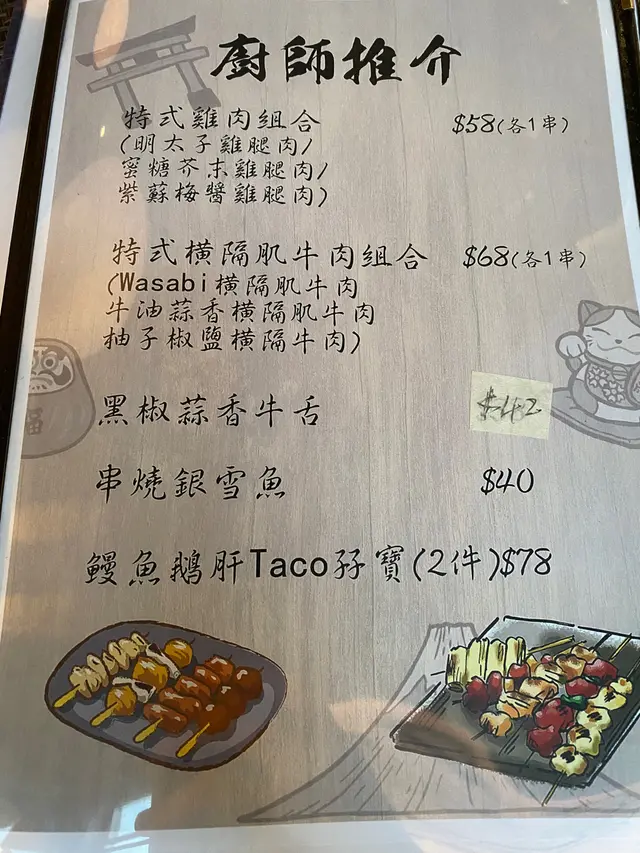 廚師推介
特式雞肉組合 $58(各1串)
(明太子雞腿肉/
蜜糖芥末雞腿肉/
紫蘇梅醬雞腿肉)
特式橫隔肌牛肉組合 $68(各1串)
(Wasabi橫隔肌牛肉
牛油蒜香橫隔肌牛肉
柚子椒鹽橫隔牛肉)
黑椒蒜香牛舌 $42
串燒銀雪魚 $40
鰻魚鵝肝Taco孖寶(2件)$78
福